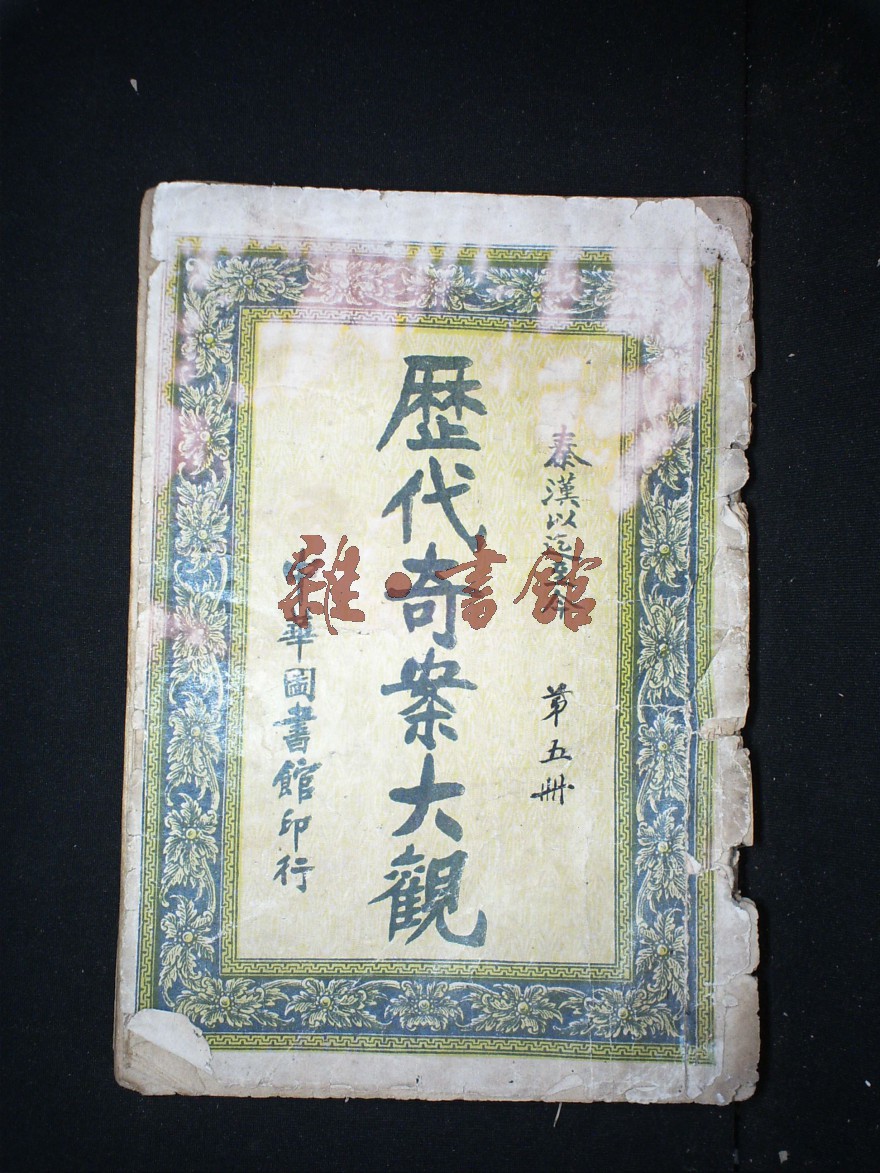 秦漢以迄至今
第五冊
歷代奇案大觀
中華圖書館印行
雜·書館